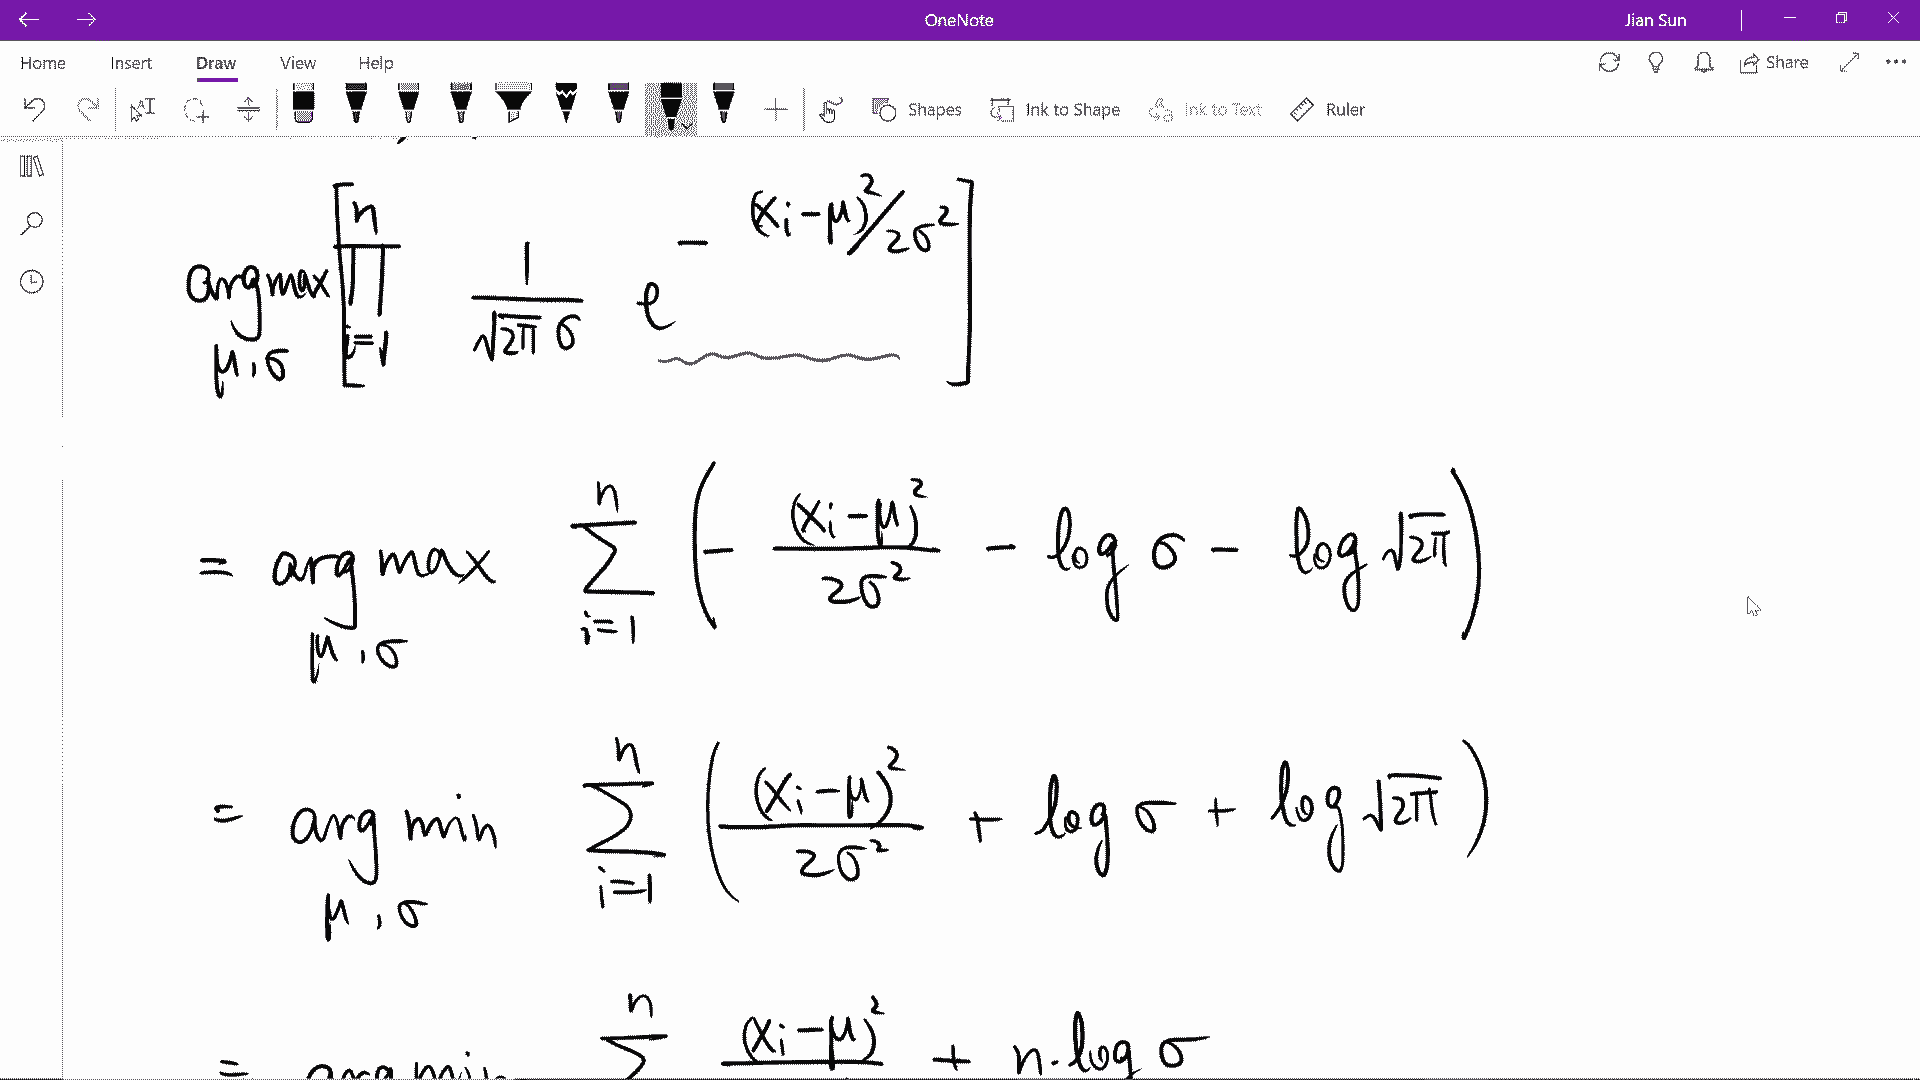 OneNote
Jian Sun
Home Insert Draw View Help
Share
Shapes Ink to Shape Ink to Text Ruler
argmax_{μ,σ} [ ∏_{i=1}^{n} 1/(√(2π) σ) e^{-(x_i-μ)^2/2σ^2} ]
= arg max_{μ,σ} ∑_{i=1}^{n} ( - (x_i-μ)^2/(2σ^2) - log σ - log √(2π) )
= arg min_{μ,σ} ∑_{i=1}^{n} ( (x_i-μ)^2/(2σ^2) + log σ + log √(2π) )
= arg min ∑^{n} (x_i-μ)^2 + n·log σ